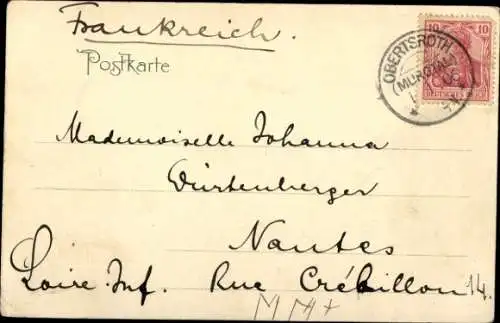 Frankreich.
Postkarte
10 10
OBERTSROTH
(MURGTHAL)
Mademoiselle Johanna
Würtenberger
Nantes
Loire Inf. Rue Crébillon 14.